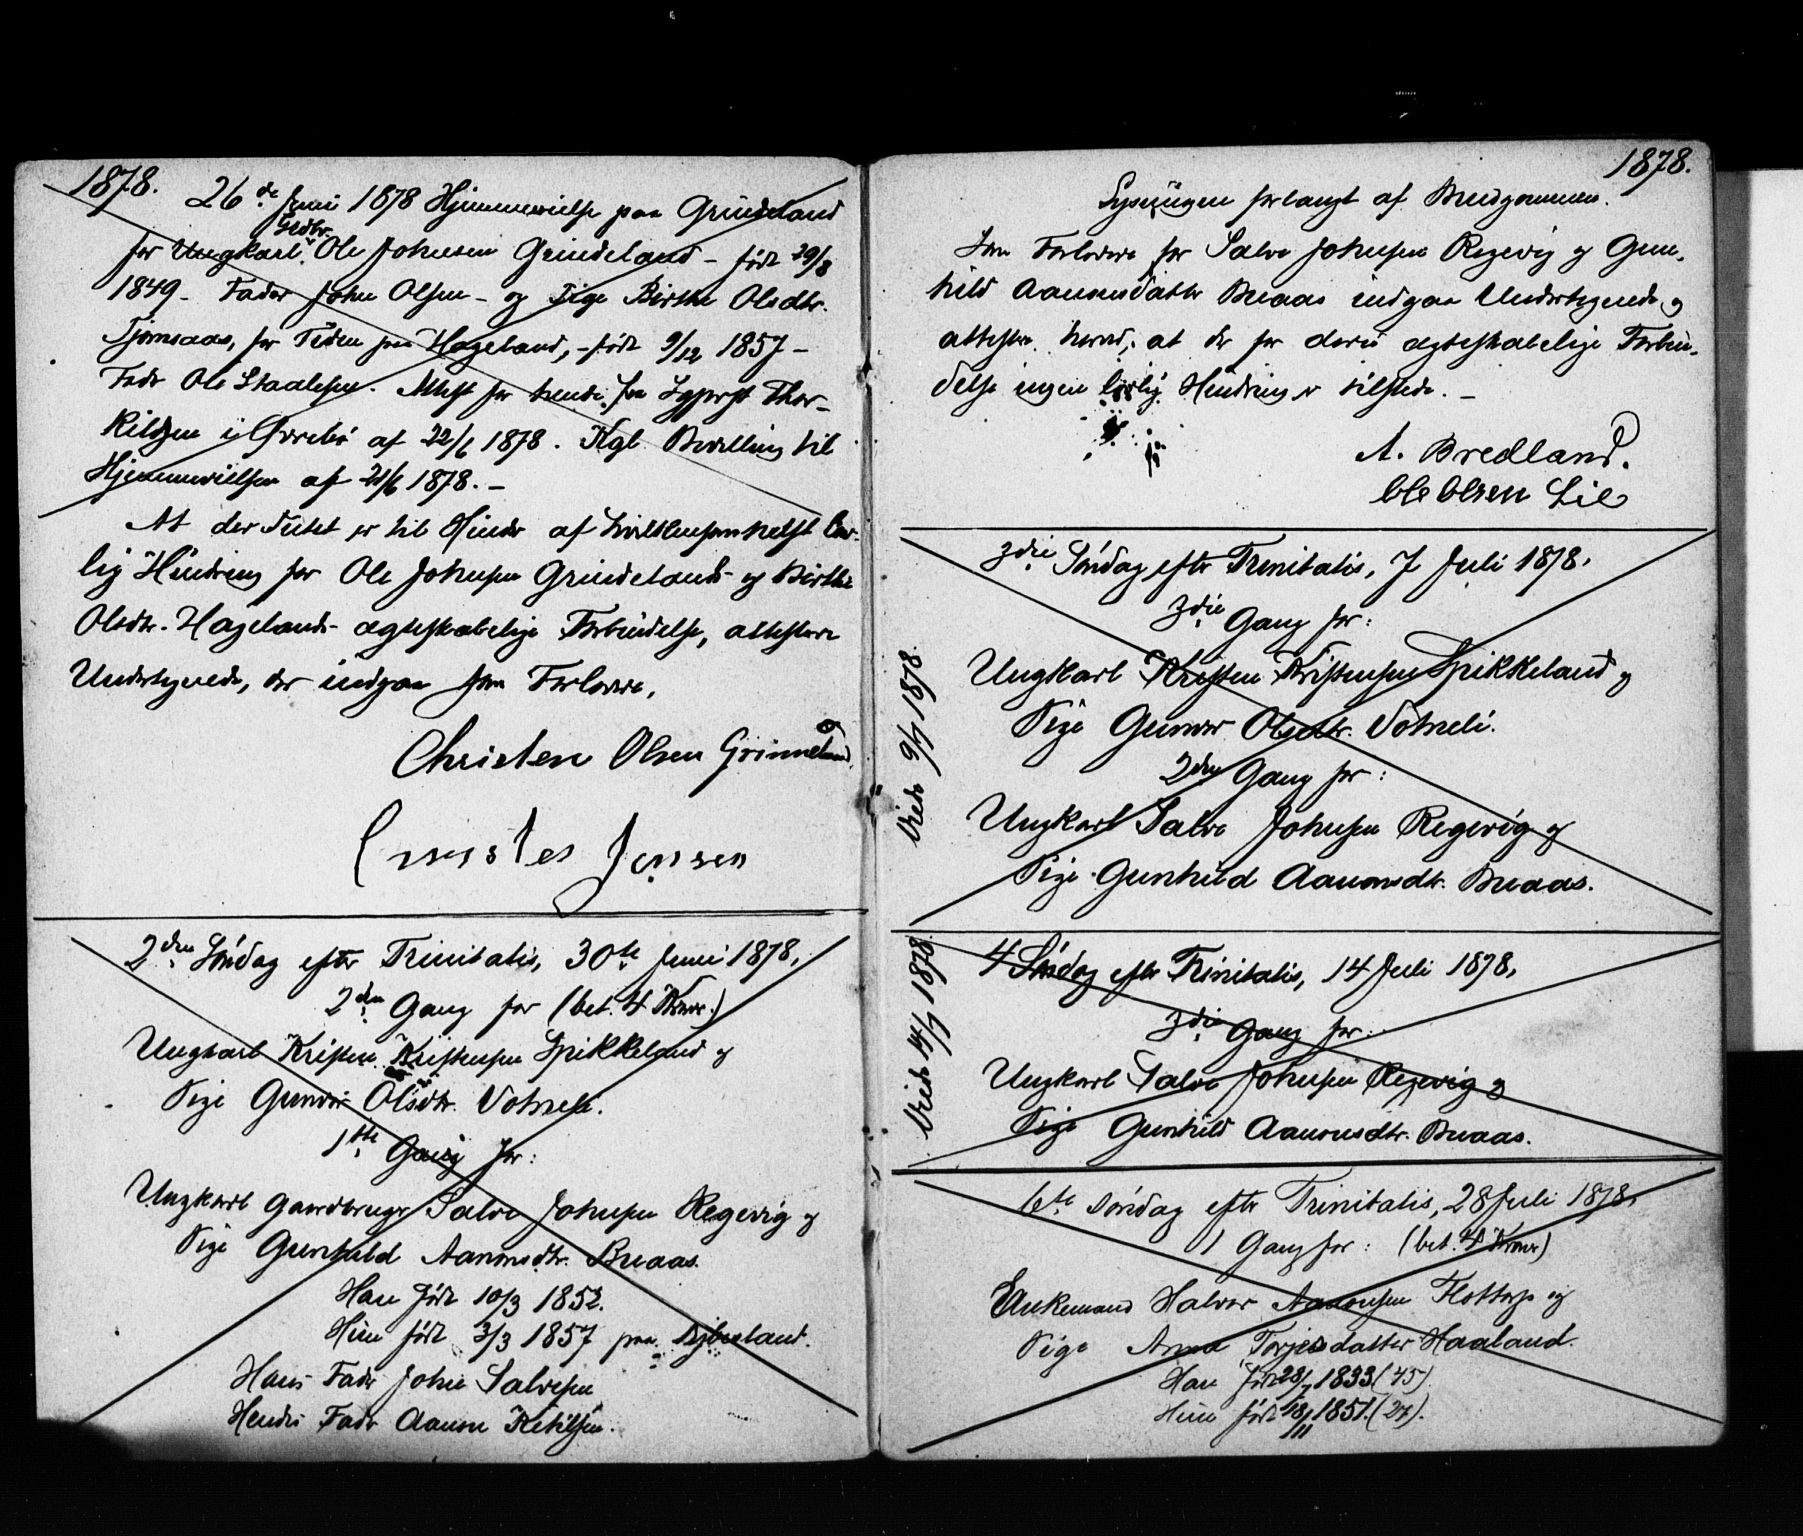 1878.
26de Juni 1878 Hjemmevielse paa Grindeland
Grdbr.
for Ungkarl Ole Johnsen Grindeland - født 29/8
1849 - Fader John Olsen - og Pige Birthe Olsdtr.
Tjomsaas, for Tiden paa Hageland, - født 9/12 1857 -
Fader Ole Staalesen. Attest for hende fra Sgprst Thor-
kildsen i af 22/6 1878. Kgl. Bevilling til
Hjemmevielsen af 21/6 1878. -
At der Intet er til Hinder af hvilkensomhelst lov-
lig Hindring for Ole Johnsen Grindelands og Birthe
Olsdtr. Hagelands ægteskabelige Forbindelse, attestere
Undertegnede, der indgaa som Forlovere.
Christen Olsen Grinneland
Jensen
2den Søndag efter Trinitatis, 30te Juni 1878.
2den Gang for (bet. 4 Kroner.)
Ungkarl Kristen Kristensen Spikkeland og
Pige Gunvor Olsdtr. Votneli.
1ste Gang for:
Ungkarl Gaardbruger Salve Johnsen Regevig og
Pige Gunhild Aanonsdtr. Buaas.
Han født 10/3 1852.
Hun født 3/3 1857 paa
Hans Fader John Salvesen
Hendes Fader Aanon Ketilsen.
1878.
Lysningen forlangt af Brudgommen.
Som Forlovere for Salve Johnsen Regevig og Gun-
hild Aanonsdatter Buaas indgaa Undertegnede og
attestere herved, at der for deres ægteskabelige Forbin-
delse ingen lovlig Hindring er tilstede. -
A. Bredland.
Ole Olsen Lie
3die Søndag efter Trinitatis, 7 Juli 1878.
3die Gang for:
Ungkarl Kristen Kristensen Spikkeland og
Pige Gunvor Olsdtr. Votneli.
2den Gang for:
Ungkarl Salve Johnsen Regevig og
Pige Gunhild Aanonsdtr. Buaas.
Viede 9/7 1878.
4 Søndag efter Trinitatis, 14 Juli 1878.
3die Gang for:
Ungkarl Salve Johnsen Regevig og
Pige Gunhild Aanonsdtr. Buaas.
Viede 14/7 1878
6te Søndag efter Trinitatis, 28 Juli 1878.
1 Gang for: (bet. 4 Kroner)
Enkemand Halvor Aanonsen Flottorp og
Pige Anna Torjesdatter Haaland.
Han født 28/7 1833 (45)
Hun født 18/11 1851. (27).